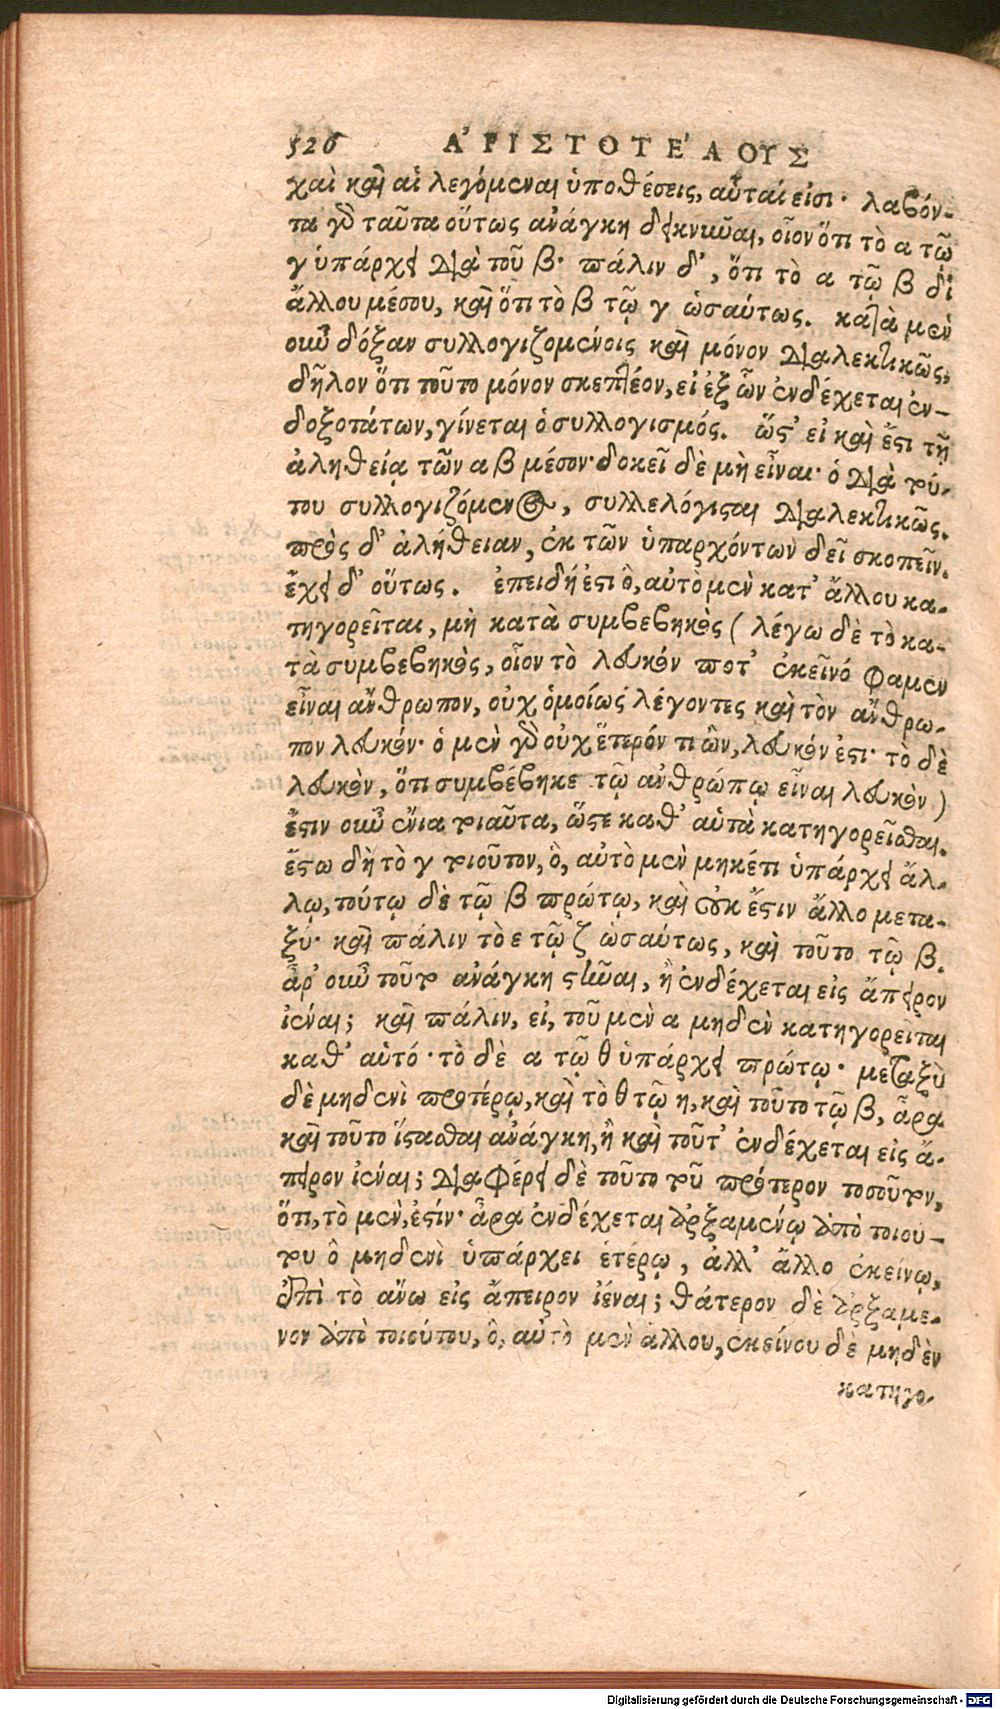 526 ἈΡΙΣΤΟΤΕΛΟΥΣ
χαὶ καὶ αἱ λεγόμεναι ὑποθέσεις, αὗταί εἰσι· λαβόν-
τα γὸ ταῦτα οὕτως ἀνάγκη δεικνύναι, οἷον ὅτι τὸ α τῷ
γ ὑπάρχει διὰ τοῦ β· πάλιν δ', ὅτι τὸ α τῷ β δι
ἄλλου μέσου, καὶ ὅτι τὸ β τῷ γ ὡσαύτως. κατὰ μὲν
οὖν δόξαν συλλογιζομένοις καὶ μόνον διαλεκτικῶς,
δῆλον ὅτι τοῦτο μόνον σκεπτέον, εἰ ἐξ ὧν ἐνδέχεται ἐν-
δοξοτάτων, γίνεται ὁ συλλογισμός. ὥστ' εἰ καὶ ἔστι τῇ
ἀληθείᾳ τῶν α β μέσον· δοκεῖ δὲ μὴ εἶναι· ὁ διὰ τού-
του συλλογιζόμενος, συλλελόγισται διαλεκτικῶς.
πρὸς δ' ἀλήθειαν, ἐκ τῶν ὑπαρχόντων δεῖ σκοπεῖν.
ἔχει δ' οὕτως. ἐπειδή ἐστι ὃ, αὐτὸ μὲν κατ' ἄλλου κα-
τηγορεῖται, μὴ κατὰ συμβεβηκὸς (λέγω δὲ τὸ κα-
τὰ συμβεβηκὸς, οἷον τὸ λευκόν ποτ' ἐκεῖνό φαμεν
εἶναι ἄνθρωπον, οὐχ ὁμοίως λέγοντες καὶ τὸν ἄνθρω-
πον λευκόν· ὁ μὲν γὸ οὐχ ἕτερόν τι ὢν, λευκόν ἐστι· τὸ δὲ
λευκὸν, ὅτι συμβέβηκε τῷ ἀνθρώπῳ εἶναι λευκὸν)
ἔστιν οὖν ἔνια τοιαῦτα, ὥστε καθ' αὑτὰ κατηγορεῖσθαι.
ἔστω δὴ τὸ γ τοιοῦτον, ὃ, αὐτὸ μὲν μηκέτι ὑπάρχει ἄλ-
λῳ, τούτῳ δὲ τῷ β πρώτῳ, καὶ οὐκ ἔστιν ἄλλο μετα-
ξύ· καὶ πάλιν τὸ ε τῷ ζ ὡσαύτως, καὶ τοῦτο τῷ β.
ἆρ' οὖν τοῦτο ἀνάγκη στῆναι, ἢ ἐνδέχεται εἰς ἄπειρον
ἰέναι; καὶ πάλιν, εἰ, τοῦ μὲν α μηδὲν κατηγορειται
καθ' αὑτό· τὸ δὲ α τῷ θ ὑπάρχει πρώτῳ· μεταξὺ
δὲ μηδενὶ προτέρῳ, καὶ τὸ θ τῷ η, καὶ τοῦτο τῷ β, ἆρα
καὶ τοῦτο ἵστασθαι ἀνάγκη, ἢ καὶ τοῦτ' ἐνδέχεται εἰς ἄ-
πειρον ἰέναι; διαφέρει δὲ τοῦτο τοῦ πρότερον τοσοῦτον,
ὅτι, τὸ μὲν, ἐστίν· ἆρα ἐνδέχεται ἀρξαμένῳ ἀπὸ τοιού-
του ὃ μηδενὶ ὑπάρχει ἑτέρῳ, ἀλλ' ἄλλο ἐκείνῳ,
ἐπὶ τὸ ἄνω εἰς ἄπειρον ἰέναι; θάτερον δὲ ἀρξαμε-
νον ἀπὸ τοιούτου, ὃ, αὐτὸ μὲν ἄλλου, ἐκείνου δὲ μηδὲν
κατηγο-
Digitalisierung gefördert durch die Deutsche Forschungsgemeinschaft - DFG